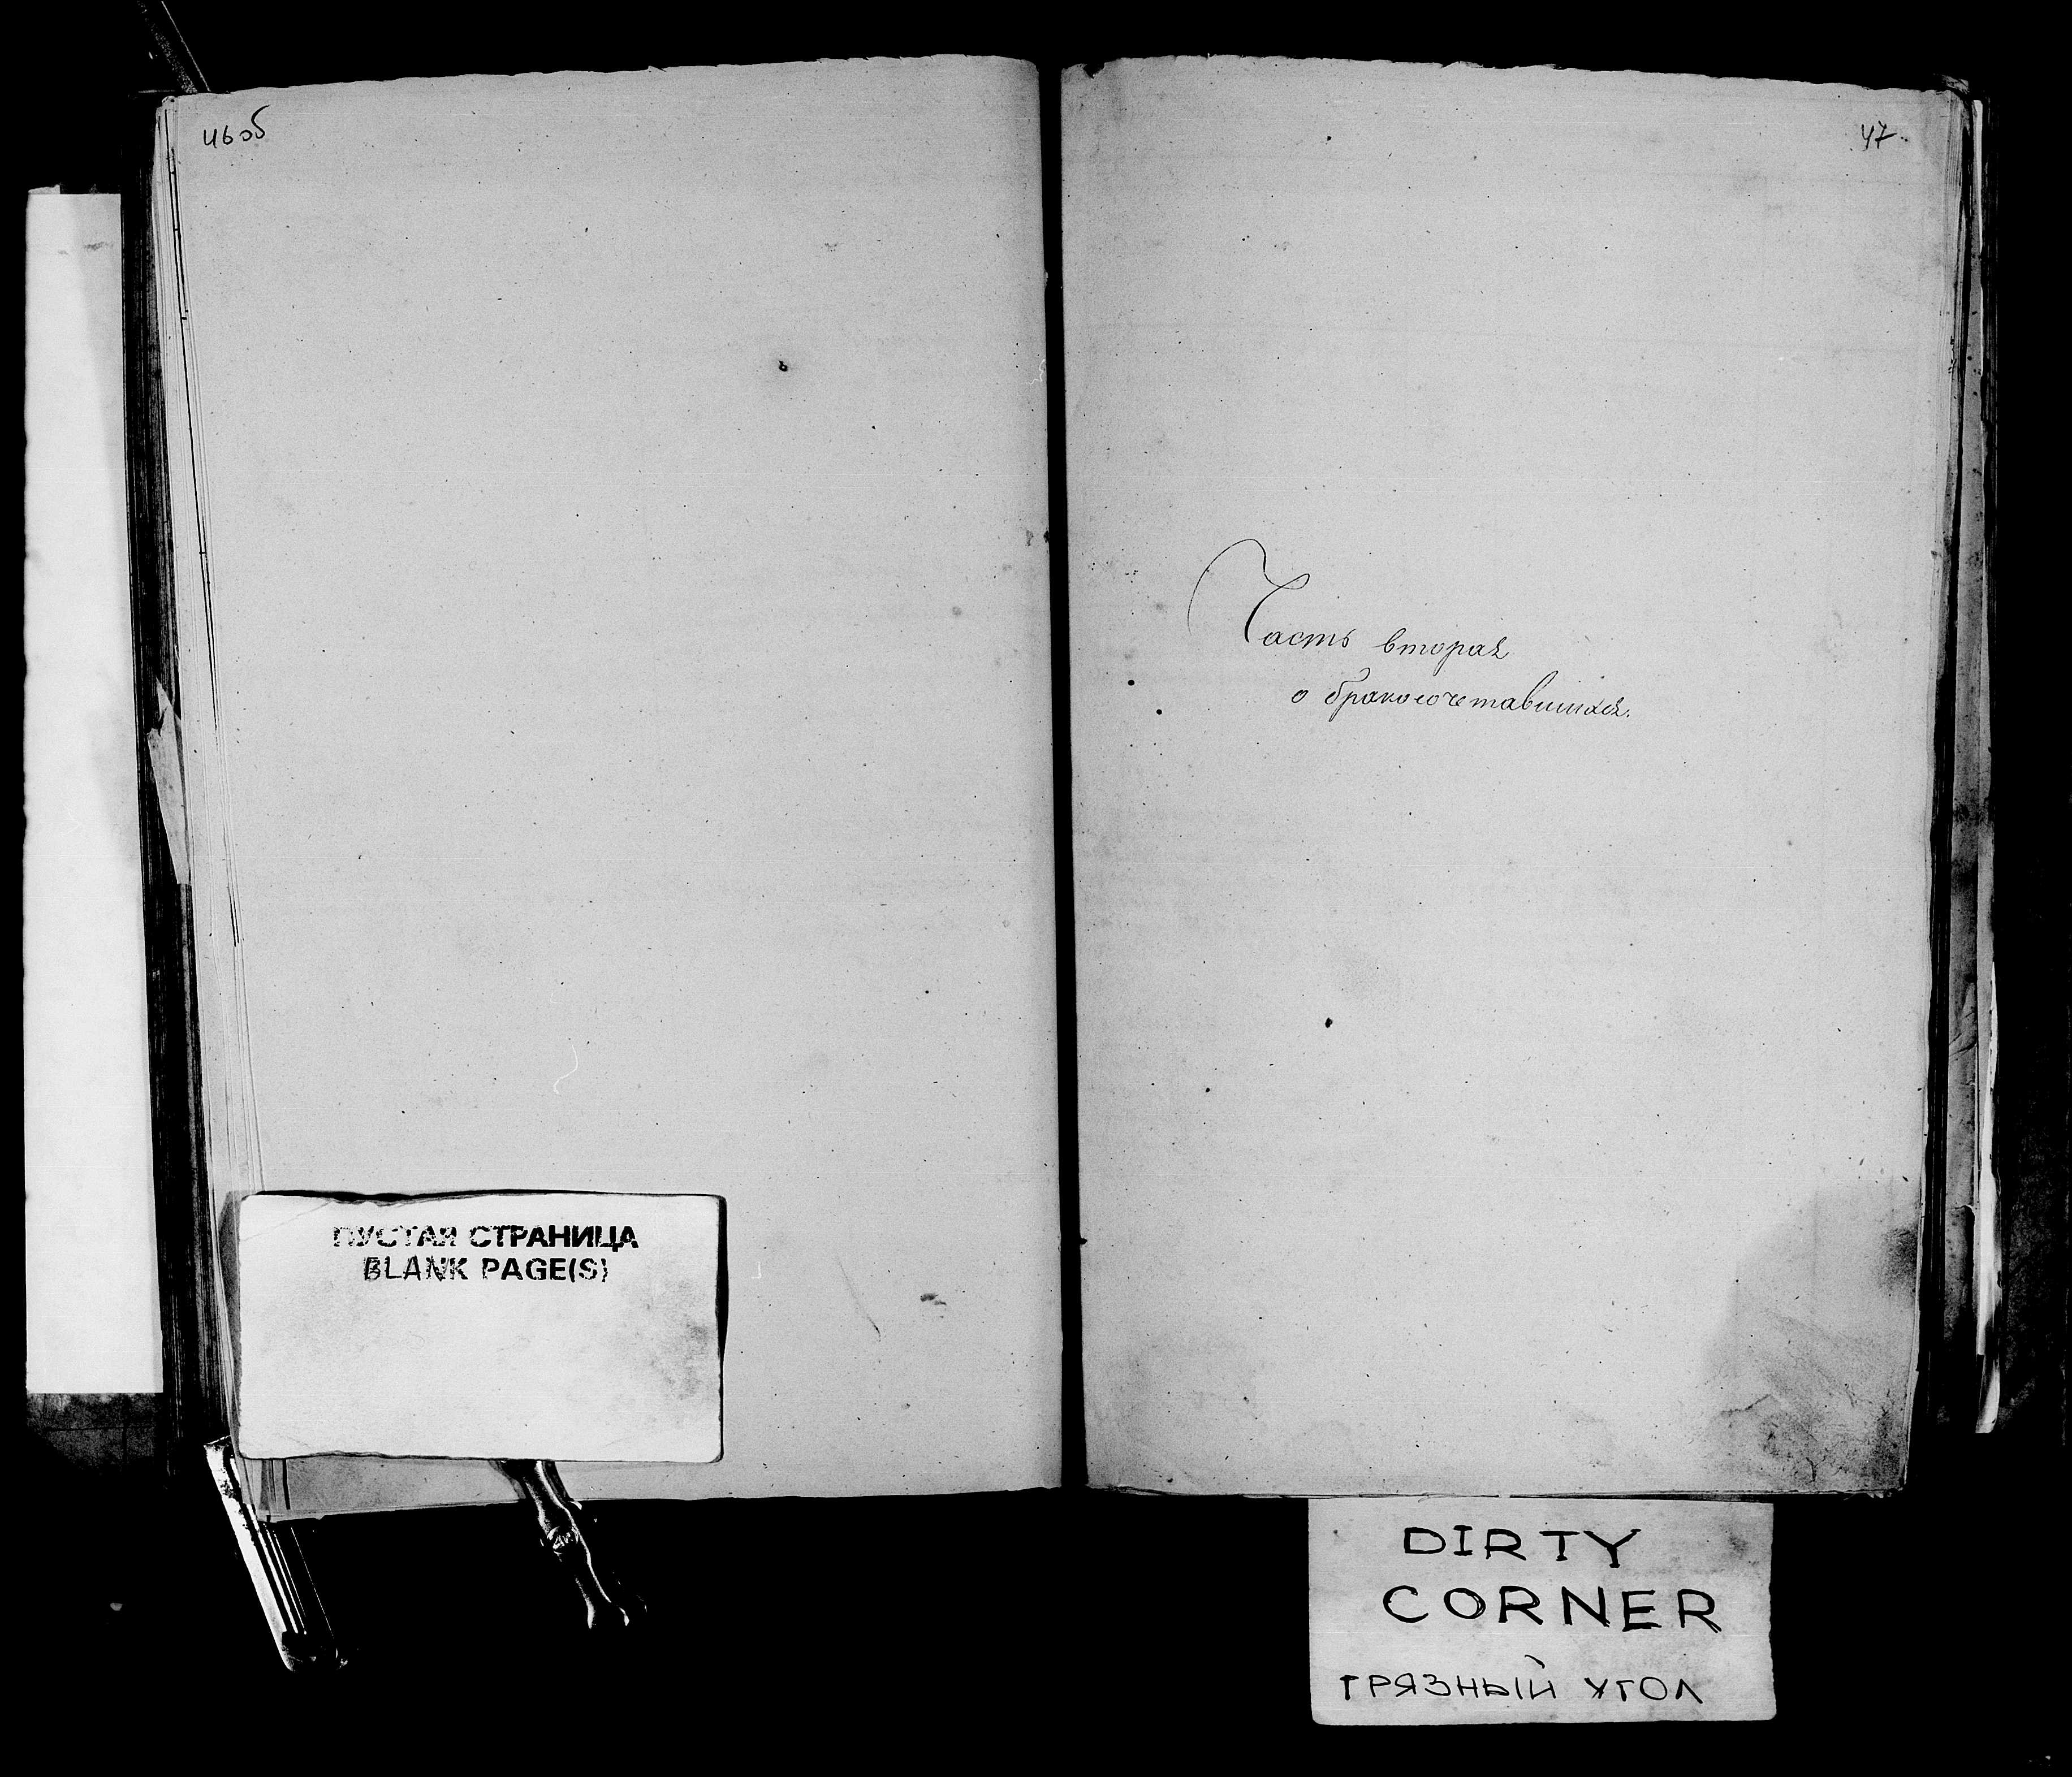 46об
47
Часть вторая
о бракосочетавшихся.
ПУСТАЯ СТРАНИЦА
BLANK PAGE(S)
DIRTY
CORNER
ГРЯЗНЫЙ УГОЛ